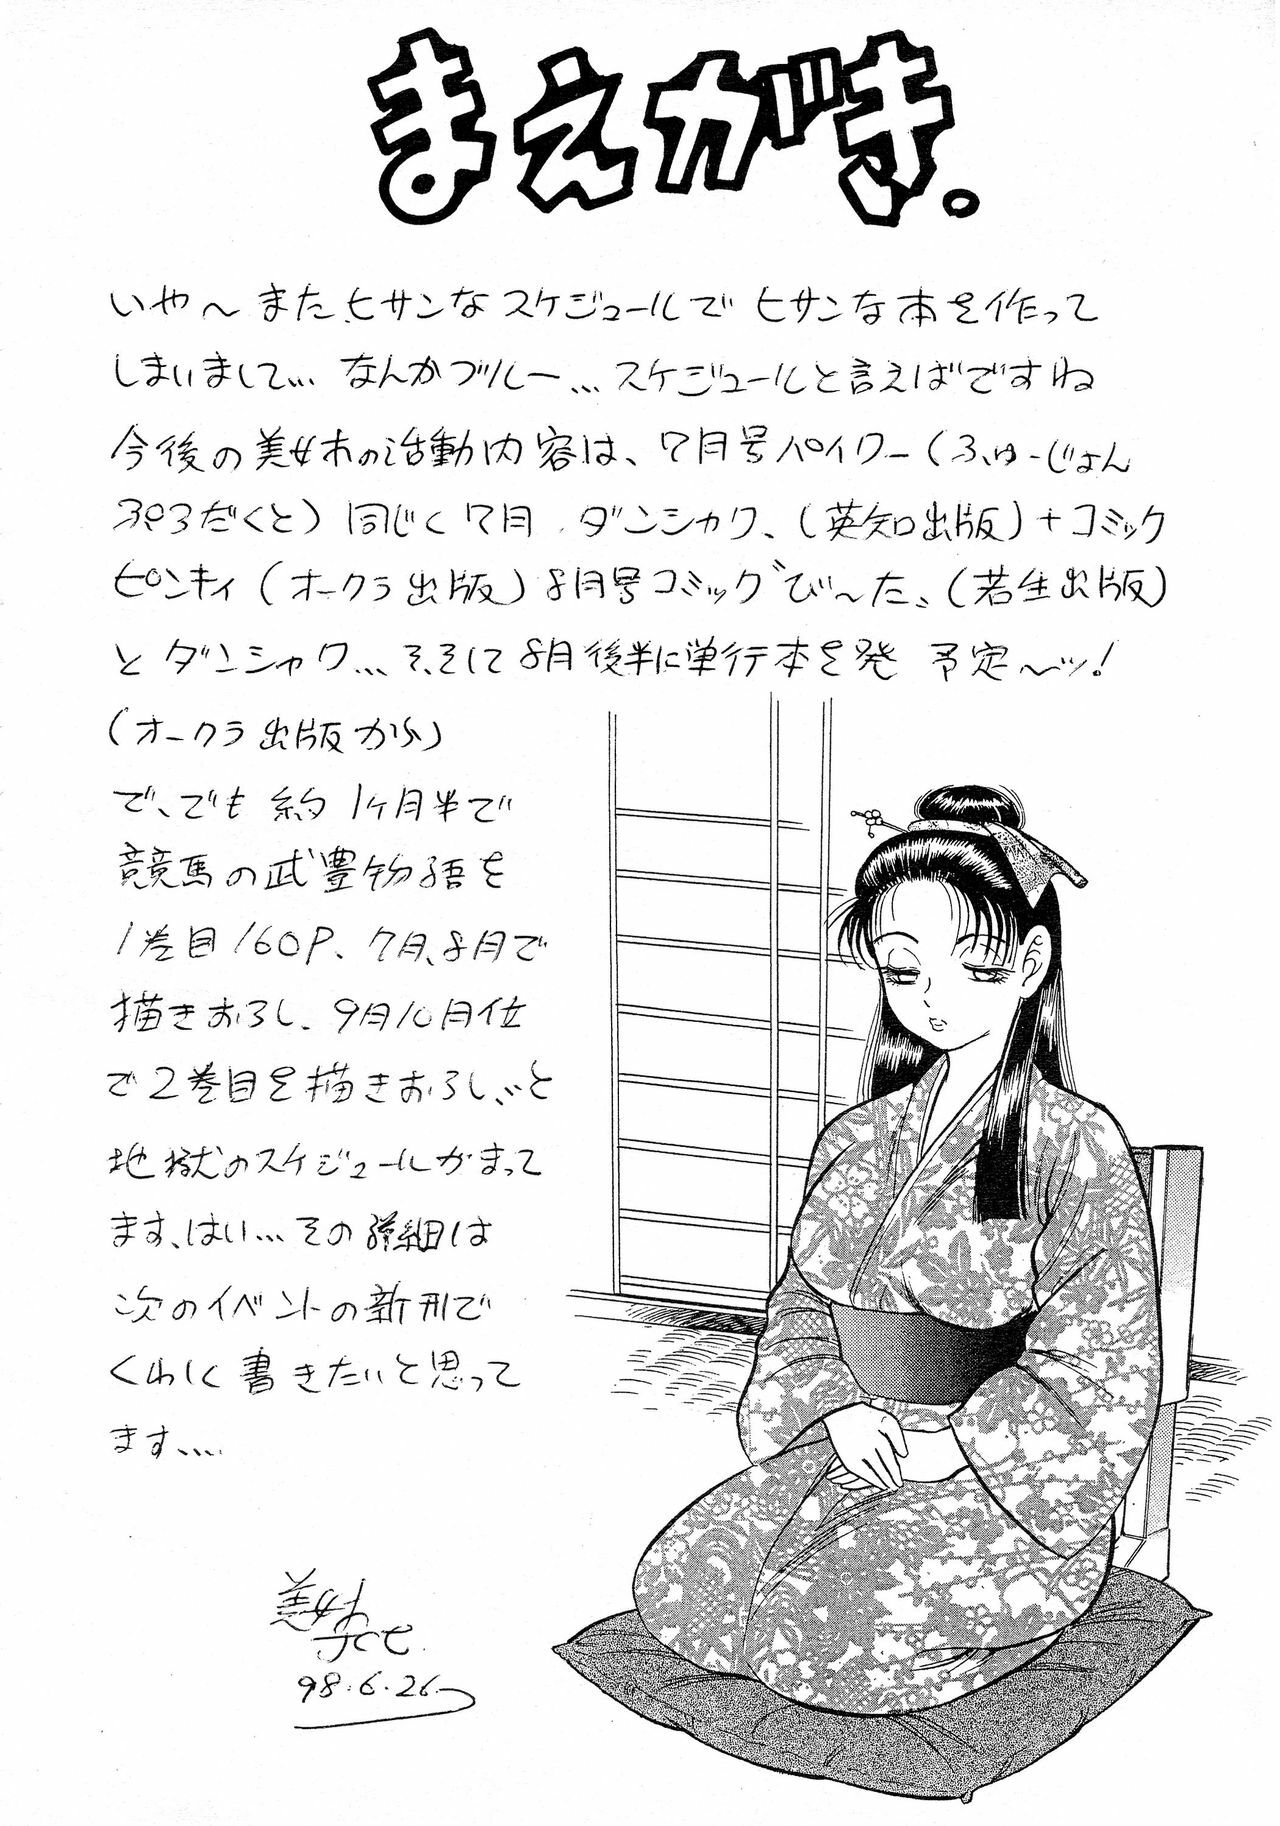 まえがき。
いや〜また、ヒサンなスケジュールでヒサンな本を作って
しまいまして… なんかブルー… スケジュールと言えばですね
今後の美女木の活動内容は、7月号パイクー(ふゅーじょん
ぷろだくと) 同じく7月 ダンシャク、(英知出版)+コミック
ピンキィ(オークラ出版) 8月号コミックび〜た、(若生出版)
とダンシャク… そ、そして8月後半に単行本を発 予定〜ッ!
(オークラ出版から)
で、でも 約1ヶ月半で
競馬の武豊物語を
1巻目160P、7月、8月で
描きおろし、9月10月位
で2巻目を描きおろし、と
地獄のスケジュールがまって
ます、はい… その詳細は
次のイベントの新刊で
くわしく書きたいと思って
ます….
美女木
98.6.26.